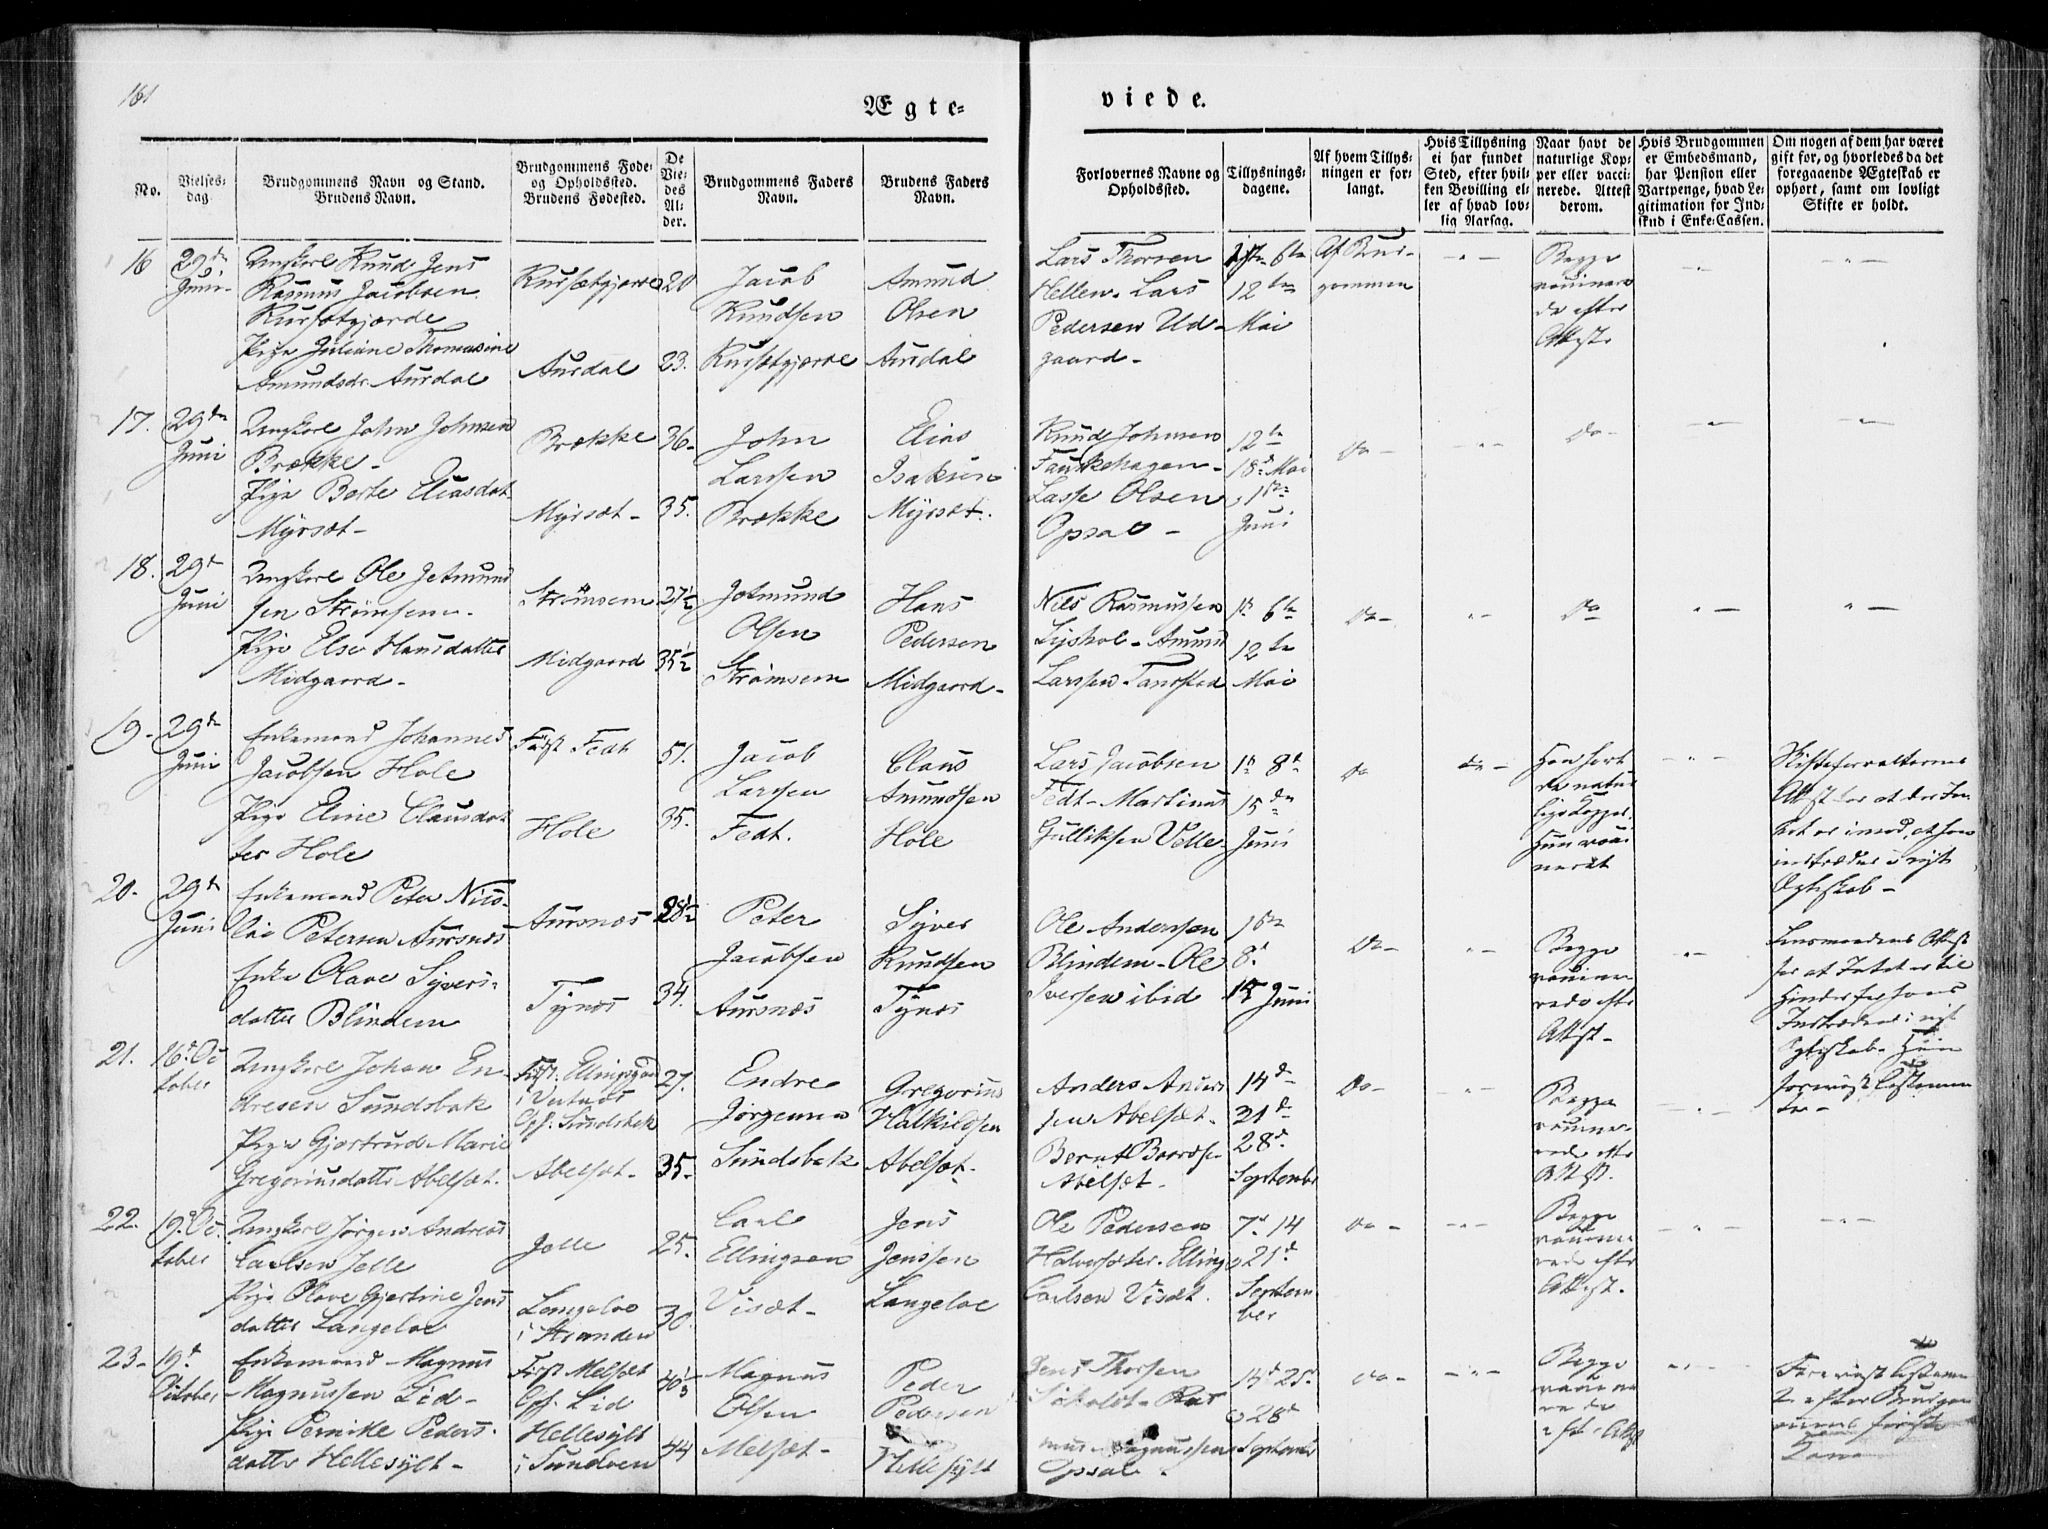 161
Ægte=
viede.
No.
Vielses=dag.
Brudgommens Navn og Stand.
Brudens Navn.
Brudgommens Føde=
og Opholdssted.
Brudens Fødested.
De
Vie=
des
Al=
der.
Brudgommens Faders
Navn.
Brudens Faders
Navn.
Forlovernes Navne og
Opholdssted.
Tillysnings=
dagene.
Af hvem Tillys=
ningen er for=
langt.
Hvis Tillysning
ei har fundet
Sted, efter hvil=
ken Bevilling el=
ler af hvad lov=
lig Aarsag.
Naar havt de
naturlige Kop=
per eller vacci=
nerede. Attest
derom.
Hvis Brudgommen
er Embedsmand,
har Pension eller
Vartpenge, hvad Le=
gitimation for Ind=
skud i Enke=Cassen.
Om nogen af dem har været
gift før, og hvorledes da det
foregaaende Ægteskab er
ophørt, samt om lovligt
Skifte er holdt.
16 29de Juni
Ungkarl Knud Jens
Rasmus Jacobsen
Kursætgjærde
Pige Juliane Thomasine
Amundsdr Aurdal
Kursætgjærde 20
Aurdal 23.
Jacob
Knudsen
Kursætgjærde
Amund
Olsen
Aurdal
Lars Thorsen
Hellen. Lars
Pedersen Ud-
gaard-
1ste 6te
12te
Mai
Af Brud-
gommen
Begge
vaccinere
de efter
Attest
17. 29de Juni
Ungkarl John Johnsen
Brække-
Pige Berte Eliasdat
Myrsæt-
Brække 36-
Myrsæt- 35.
John
Larssen
Brække
Elias
Isaksen
Myrsæt.
Knud Johnsen
Fauskehagen-
Lasse Olsen
Opsal-
12te
18de Mai
1ste
Juni
Do-
Do-
18. 29de Juni
Ungkarl Ole Jetmund
sen Strømsem-
Pige Else Hansdatter
Midgaard-
Strømsem 27½
Midgaard 35½
Jetmund
Olsen
Strømsem
Hans
Pedersen
Midgaard-
Nils Rasmussen
Lyshol- Amund
Larssen Tanstad
1ste 6te
12te
Mai
Do-
Do
19- 29de Juni
Enkemand Johannes
Jacobsen Hole
Pige Eline Clausdat
ter Hole
Født Fedt 51.
Hole 35.
Jacob
Larssen
Fedt.
Claus
Amundsen
Hole
Lars Jacobsen
Fedt- Martinus
Gulliksen Velle
1ste 8de
15de
Juni
Do
Do-
Han havt
de natur
lige Kopper.
Hun vacci
neret
Skifteforvalterens
Attest for at der In
tet er imod, at han
indtræder i nyt
Ægteskab-
20- 29de Juni
Enkemand Peter Nico-
lai Petersen Aursnæs
Enke Olave Syvers-
datter Blindem
Aursnæs 28½
Tynæs 34.
Peter
Jacobsen
Aursnæs
Syver
Knudsen
Tynæs
Ole Anderssen
Blindem- Ole
Iversen ibid
1ste
8de
15 Juni
Do-
Begge
vaccine
rede efter
Attest-
Lensmandens Attest
for at Intet er til
Hinder for hans
Indtræden i nyt
Ægteskab- Hun
forevist Testamen
te-
21. 16de October
Ungkarl Johan En-
dresen Sundsbak
Pige Gjertrud Marie
Gregoriusdatter Abelsæt.
Født Ellingsgaard
Opf. Sundsbak 27.
Abelsæt- 35-
Endre
Jørgensen
Sundsbak
Gregorius
Halkildsen
Abelsæt-
Anders Anders
sen Abelsæt.
Bernt Baardse
Abelsæt-
14de
21de
28de
September
Do-
Begge
vaccine-
rede efter
Attest.
22. 19de October
Ungkarl Jørgen Andreas
Carlsen Jelle
Pige Olave Gjertine Jens
datter Langeloe
Jelle 25.
Langeloe
i Stranden 30.
Carl
Ellingsen
Visæt-
Jens
Jenssen
Langeloe
Ole Pedersen
Halversæter. Elling
Carlsen Visæt.
7de 14
o 21de
Septem
ber
Do-
Begge
vaccine
rede efter
Attest.
23- 19de October
Enkemand Magnus
Magnussen Lid-
Pige Pernille Peders-
datter Hellesylt-
Født Melsæt
Opf. Lid 40½
Hellesylt
i Sundven 44
Magnus
Olsen
Melsæt-
Peder
Pedersen
Hellesylt
Jens Thorsen
Sokoldt- Ras
mus Magnussen
Opsal-
14de 25
o 28de
September
Do-
Begge
vaccine
rede
efter Attest
Forevist Testamen
te efter Brudgom
mens første
Kone